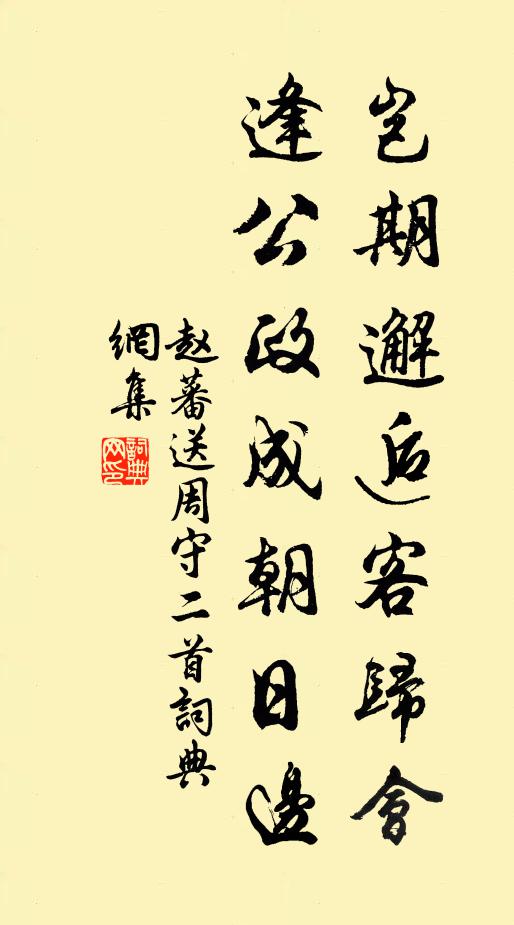 豈期邂逅客歸會
逢公政成朝日邊
趙蕃送周守二首詞典
網集
詞典網印